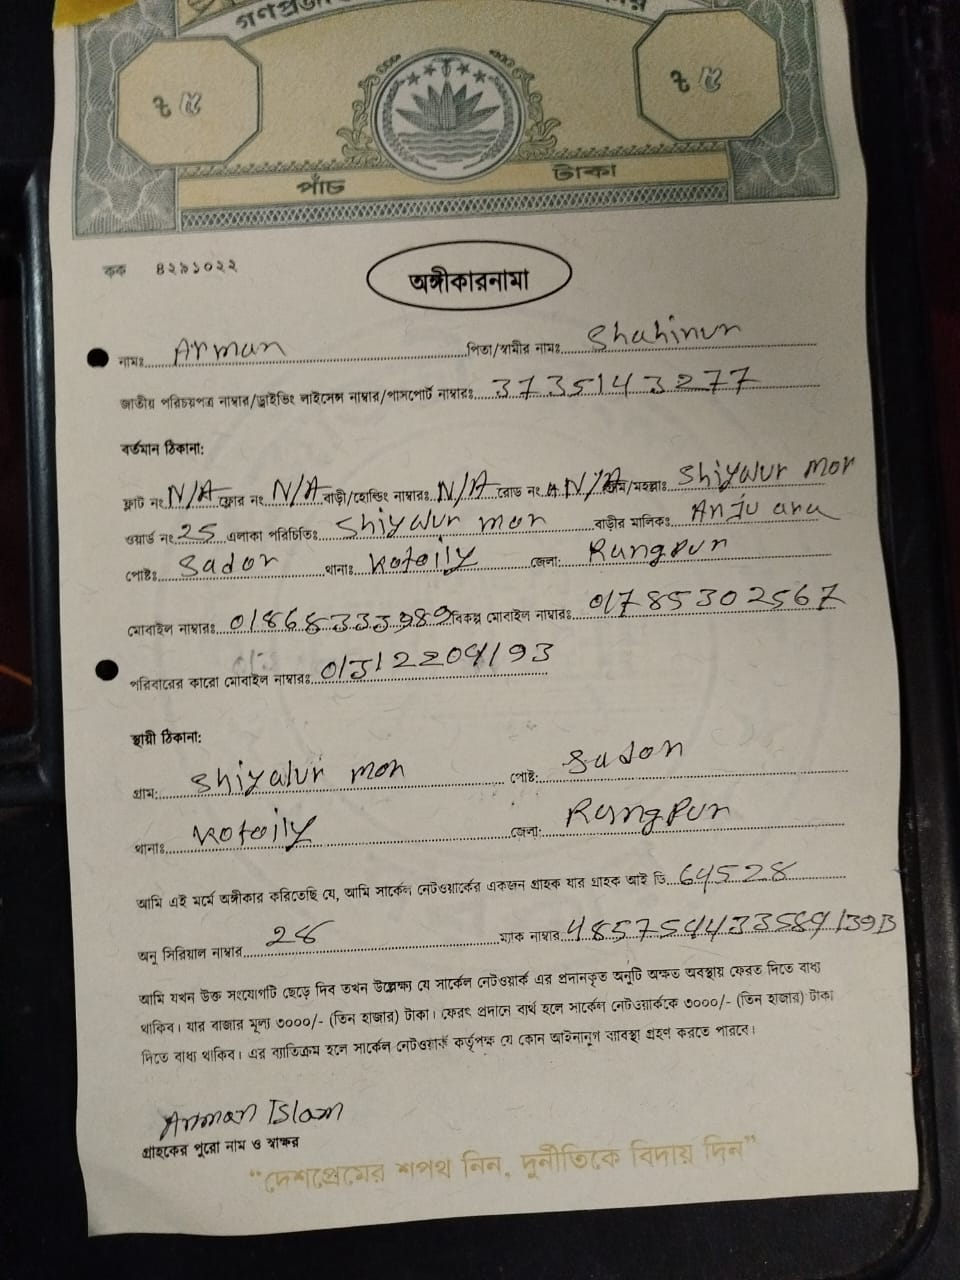 ৳ ৫ ৳ ৫
পাঁচ টাকা
কক ৪২৯১০২২
অঙ্গীকারনামা
নামঃ Arman পিতা/স্বামীর নামঃ Shahinur
জাতীয় পরিচয়পত্র নাম্বার/ড্রাইভিং লাইসেন্স নাম্বার/পাসপোর্ট নাম্বারঃ 3735143277
বর্তমান ঠিকানা:
ফ্লাট নং N/A ফ্লোর নং N/A বাড়ী/হোল্ডিং নাম্বারঃ N/A রোড নং N/A /মহল্লাঃ Shiyalur mor
ওয়ার্ড নং 25 এলাকা পরিচিতিঃ Shiyalur mor বাড়ীর মালিকঃ Anju ara
পোষ্টঃ Sador থানাঃ Kotoily জেলা: Rangpur
মোবাইল নাম্বারঃ 01868333989 বিকল্প মোবাইল নাম্বারঃ 01785302567
পরিবারের কারো মোবাইল নাম্বারঃ 01312204193
স্থায়ী ঠিকানা:
গ্রাম: Shiyalur mor পোষ্ট: Sador
থানাঃ Kotoily জেলা: Rangpur
আমি এই মর্মে অঙ্গীকার করিতেছি যে, আমি সার্কেল নেটওয়ার্কের একজন গ্রাহক যার গ্রাহক আই ডি 64528
অনু সিরিয়াল নাম্বার 28 ম্যাক নাম্বার 4857544333584139B
আমি যখন উক্ত সংযোগটি ছেড়ে দিব তখন উল্লেক্ষ্য যে সার্কেল নেটওয়ার্ক এর প্রদানকৃত অনুটি অক্ষত অবস্থায় ফেরত দিতে বাধ্য
থাকিব। যার বাজার মূল্য ৩০০০/- (তিন হাজার) টাকা। ফেরৎ প্রদানে ব্যর্থ হলে সার্কেল নেটওয়ার্ককে ৩০০০/- (তিন হাজার) টাকা
দিতে বাধ্য থাকিব। এর ব্যাতিক্রম হলে সার্কেল নেটওয়ার্ক কর্তৃপক্ষ যে কোন আইনানুগ ব্যাবস্থা গ্রহণ করতে পারবে।
Arman Islam
গ্রাহকের পুরো নাম ও স্বাক্ষর
“দেশপ্রেমের শপথ নিন, দুর্নীতিকে বিদায় দিন”